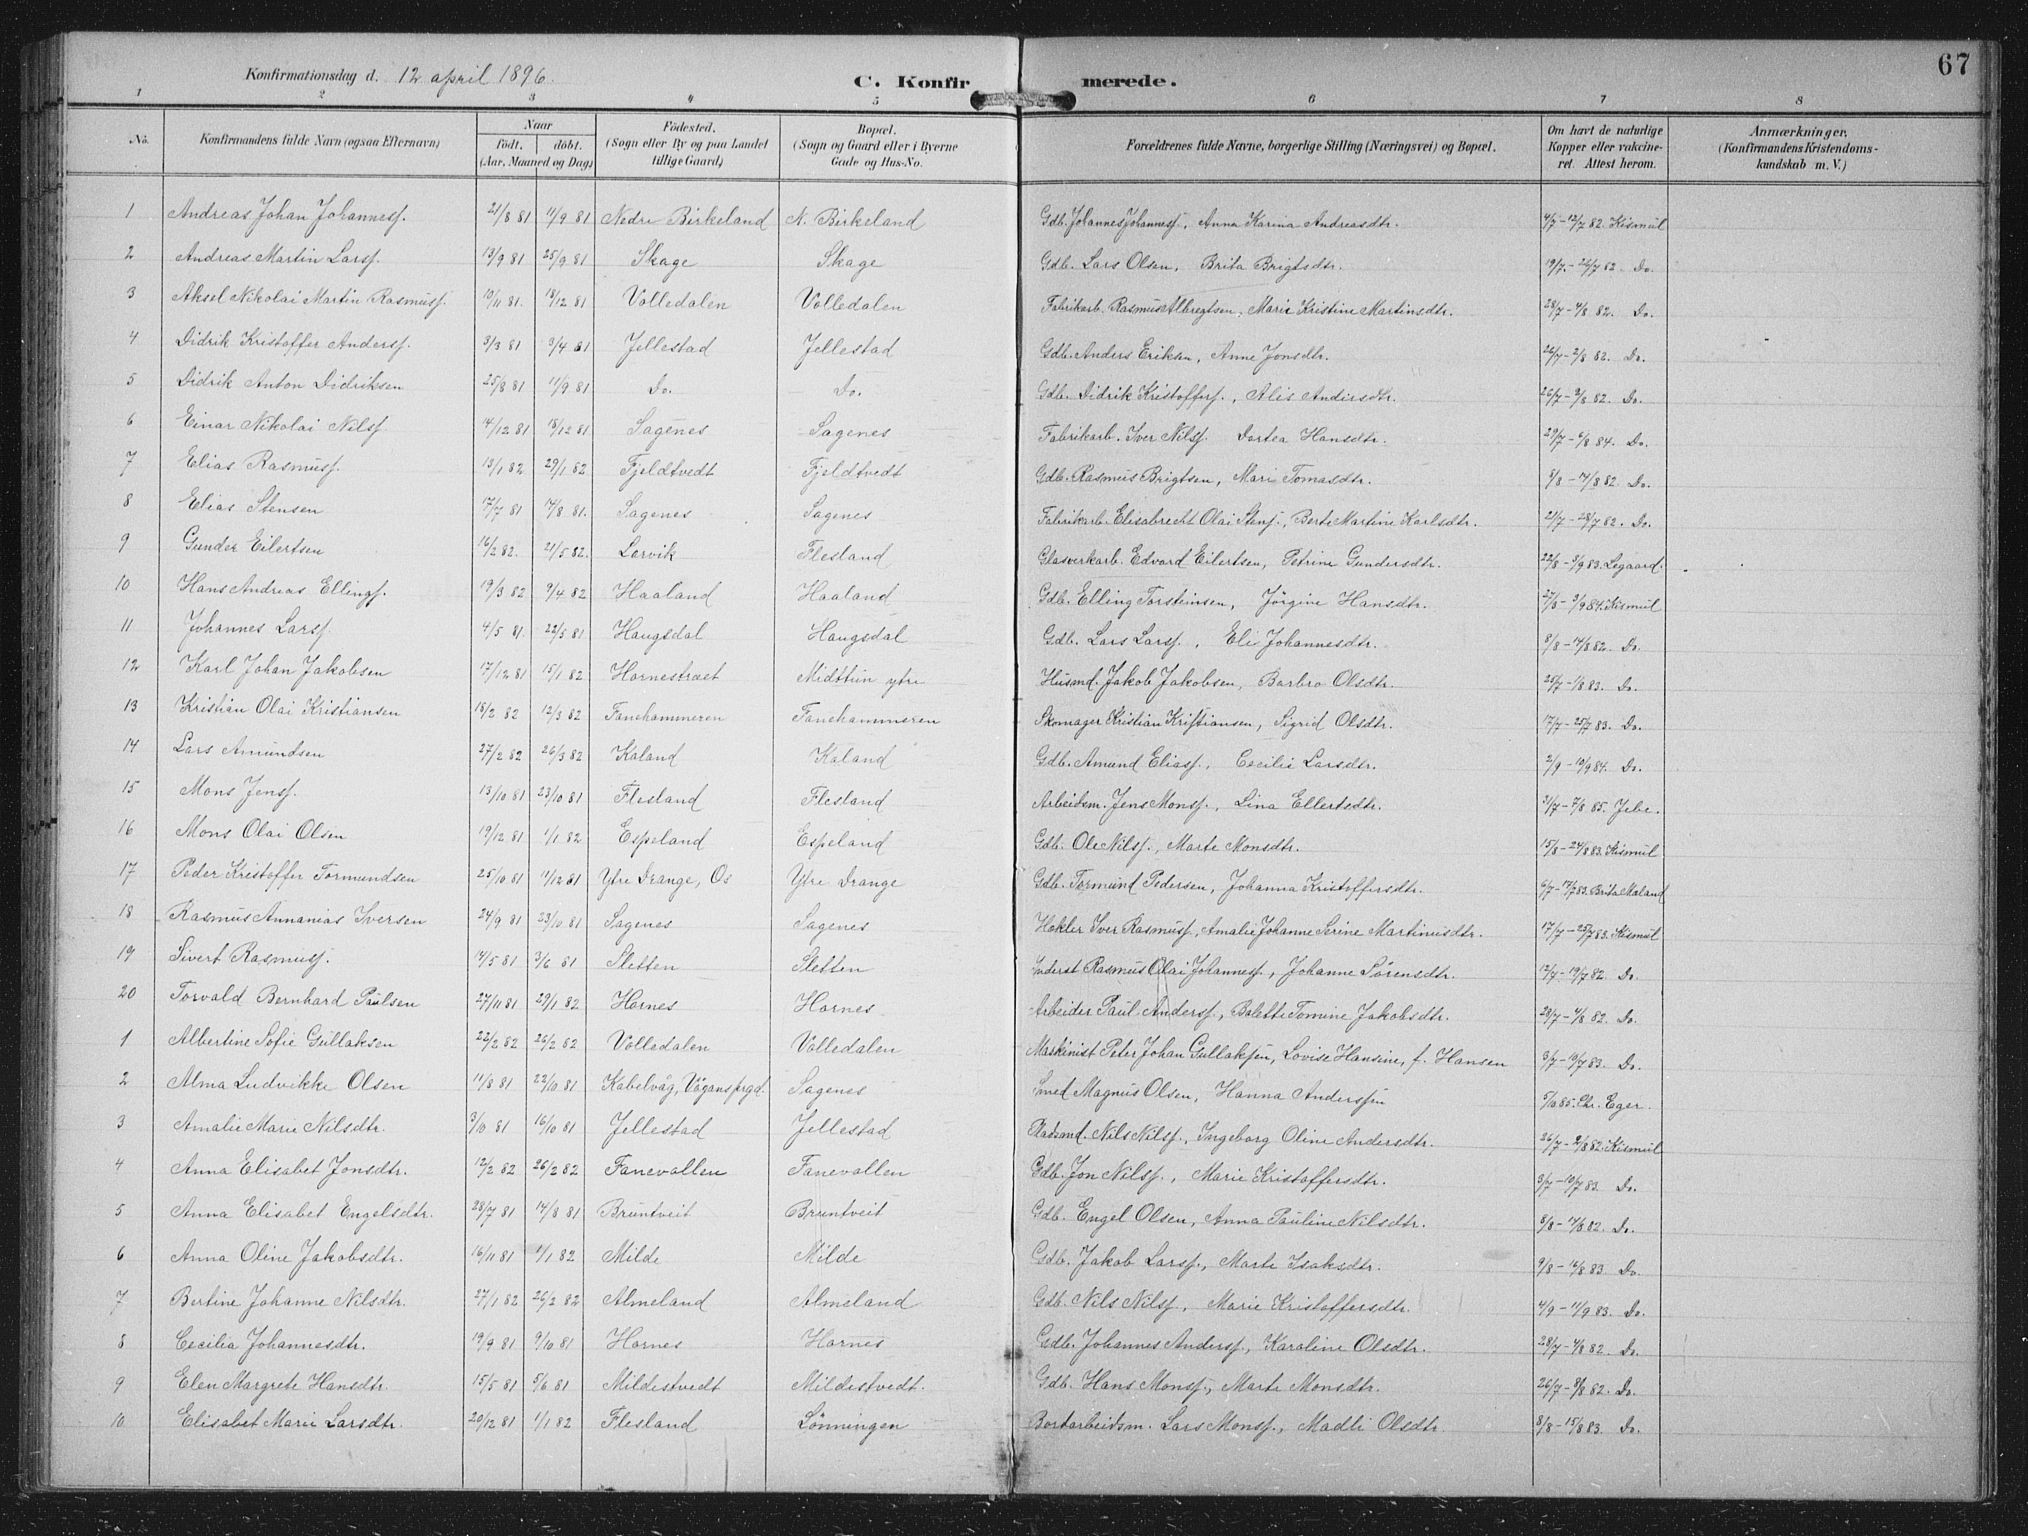 67
Konfirmationsdag d. 12 april 1896.
C. Konfirmerede.
1 2 3 4 5 6 7 8
No. Konfirmandens fulde Navn (ogsaa Efternavn) Naar födt. döbt. (Aar, Maaned og Dag) Födested. (Sogn eller By og paa Landet tillige Gaard) Bopæl. (Sogn og Gaard eller i Byerne Gade og Hus-No. Forældrenes fulde Navne, borgerlige Stilling (Næringsvei) og Bopæl. Om havt de naturlige Kopper eller vakcineret. Attest herom. Anmærkninger. (Konfirmandens Kristendomskundskab m. V.)
1 Andreas Johan Johannesf. 21/8 81 11/9 81 Nedre Birkeland N. Birkeland Gdb. Johannes Johannesf., Anna Karina Andreasdtr. 4/7 – 12/7 82. Kismul
2 Andreas Martin Larsf. 13/9 81 25/9 81 Skage Skage Gdb. Lars Olsen, Brita Brigtsdtr. 19/7 – 26/7 82. Do.
3 Aksel Nikolai Martin Rasmusf. 10/11 81. 18/12 81 Volledalen Volledalen Fabrikarb. Rasmus Albregtsen, Marie Kristine Martinsdtr. 28/7 – 4/8 82. Do.
4 Didrik Kristoffer Andersf. 3/3 81 3/4 81 Jellestad Jellestad Gdb. Anders Eriksen, Anne Jonsdtr. 26/7 – 2/8 82. Do.
5 Didrik Anton Didriksen 25/8 81 11/9 81 Do. Do. Gdb. Didrik Kristofferf., Alis Andersdtr. 26/7 – 2/8 82. Do.
6 Einar Nikolai Nilsf 14/12 81 18/12 81 Sagenes Sagenes Fabrikarb. Iver Nilsf. Dortea Hansdtr. 29/7 – 6/8 84. Do.
7 Elias Rasmusf. 13/1 82 29/1 82 Fjeldtvedt Fjeldtvedt Gdb. Rasmus Brigtsen, Mari Tomasdtr. 8/8 – 14/8 82. Do.
8 Elias Stensen 17/7 81 14/8 81. Sagenes Sagenes Fabrikarb. Elisabrecht Olai Stenf., Berte Martine Karlsdtr. 21/7 – 28/7 82. Do.
9 Gunder Eilertsen 16/2 82. 21/5 82. Larvik Flesland Glasverkarb. Edvard Eilertsen, Petrine Gundersdtr. 22/8 – 3/9 83. Legaard.
10 Hans Andreas Ellingf. 19/3 82 9/4 82 Haaland Haaland Gdb. Elling Torsteinsen, Jörgine Hansdtr. 27/8 – 3/9 84. Kismul
11 Johannes Larsf. 4/5 81. 22/5 81 Haugsdal Haugsdal Gdb. Lars Larsf., Eli Johannesdtr. 8/8 – 14/8 82. Do.
12 Karl Johan Jakobsen 17/12 81 15/1 82 Hornestræet Midttun ytre Husmd. Jakob Jakobsen, Barbro Olsdtr. 25/7 – 1/8 83. Do.
13 Kristian Olai Kristiansen 18/2 82 12/3 82 Fanehammeren Fanehammeren Skomager Kristian Kristiansen, Sigrid Olsdtr. 17/7 – 25/7 83. Do.
14 Lars Amundsen 27/2 82 26/3 82 Kaland Kaland Gdb. Amund Eliasf., Cecilie Larsdtr. 2/9 – 10/9 84. Do.
15 Mons Jensf. 13/10 81 23/10 81 Flesland Flesland Arbeidsm. Jens Monsf., Lina Ellertsdtr. 31/7 – 7/8 85. Jebe.
16 Mons Olai Olsen 19/12 81 1/1 82 Espeland Espeland Gdb. Ole Nilsf., Marte Monsdtr. 15/8 – 24/8 83. Kismul
17 Peder Kristoffer Tormundsen 25/10 81 11/12 81 Ytre Drange, Os Ytre Drange Gdb. Tormund Pedersen, Johanna Kristoffersdtr. Brita Maland
18 Rasmus Annanias Iversen 24/9 81 23/10 81 Sagenes Sagenes Hekler Iver Rasmusf., Amalie Johanne Serine Martinusdtr. 17/7 – 25/7 83. Kismul
19 Sivert Rasmusf. 14/5 81 3/6 81 Sletten Sletten Inderst Rasmus Olai Johannesf., Johanne Sörensdtr. 12/7 – 19/7 82. Do.
20 Torvald Bernhard Paulsen 27/11 81 29/1 82 Hornes Hornes Arbeider Paul Andersf., Bolette Tomine Jakobsdtr. 28/7 – 4/8 82. Do.
1 Albertine Sofie Gullaksen 22/2 82 26/2 82 Volledalen Volledalen Maskinist Peter Johan Gullaksen, Lovise Hansine, f. Hansen 3/7 – 10/7 83. Do.
2 Alma Ludvikke Olsen 11/8 81 22/10 81 Kabelvåg, Vågansprgd. Sagenes Smed Magnus Olsen, Hanna Anderssen 5/10 85. Chr. Eger.
3 Amalie Marie Nilsdtr. 3/10 81 16/10 81 Jellestad Jellestad Pladsmd. Nils Nilsf., Ingeborg Oline Andersdtr. 26/7 – 2/8 82. Kismul
4 Anna Elisabet Jonsdtr. 12/2 82 26/2 82 Fanevollen Fanevollen Gdb. Jon Nilsf., Marie Kristoffersdtr. 3/7 – 10/7 83. Do.
5 Anna Elisabet Engelsdtr. 28/7 81 14/8 81 Bruntveit Bruntveit Gdb. Engel Olsen, Anna Pauline Nilsdtr. 8/8 – 14/8 82. Do.
6 Anna Oline Jakobsdtr. 16/11 81 1/1 82 Milde Milde Gdb. Jakob Larsf., Marte Isaksdtr. 9/8 – 16/8 83. Do.
7 Bertine Johanne Nilsdtr. 27/1 82 26/2 82 Almeland Almeland Gdb. Nils Nilsf., Marie Kristoffersdtr. 4/9 – 11/9 83. Do.
8 Cecilia Johannesdtr. 19/9 81 9/10 81 Hornes Hornes Gdb. Johannes Andersf., Karoline Olsdtr. 28/7 – 4/8 82. Do.
9 Elen Margrete Hansdtr. 15/5 81 5/6 81 Mildestvedt Mildestvedt. Gdb. Hans Monsf., Marte Monsdtr. 26/7 – 8/8 82. Do.
10 Elisabet Marie Larsdtr. 20/12 81 1/1 82 Flesland Lönningen Bortarbeidsm. Lars Monsf., Madli Olsdtr. 8/8 – 15/8 83. Do.